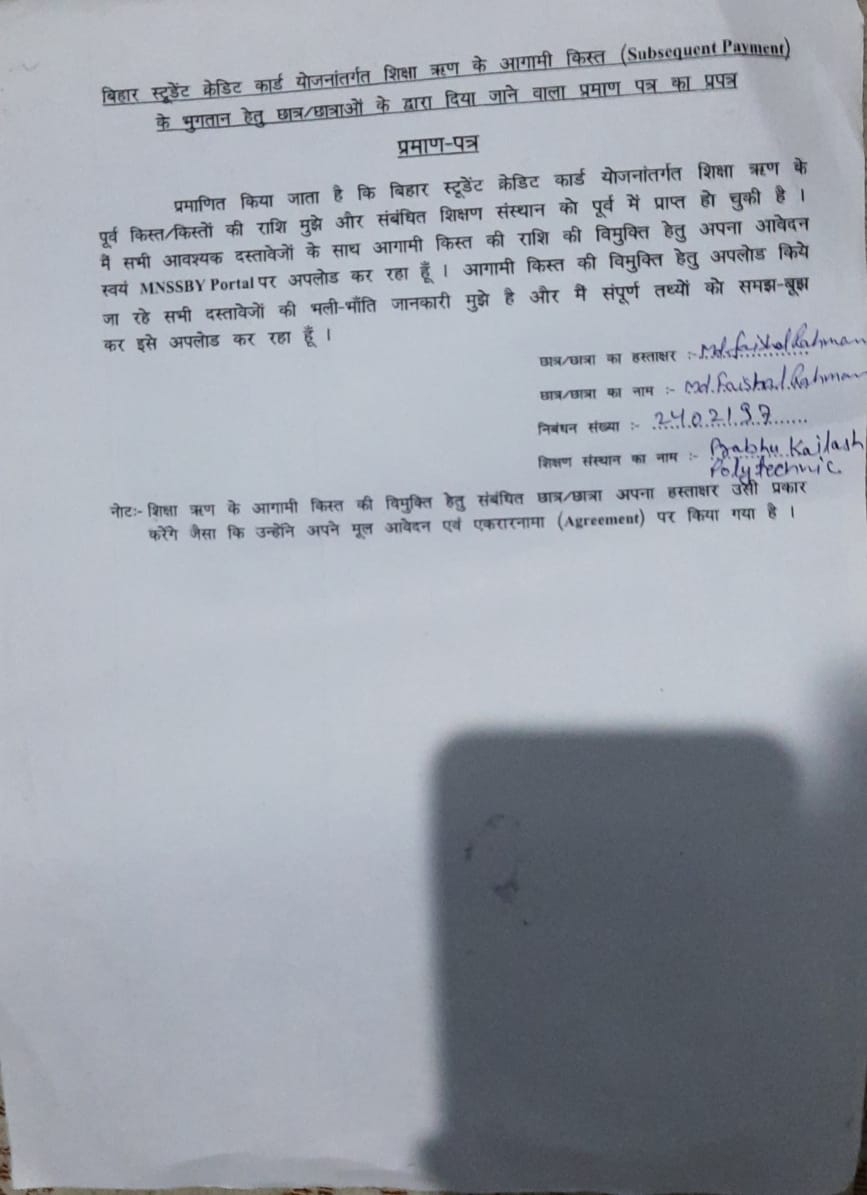 बिहार स्टूडेंट क्रेडिट कार्ड योजनांतर्गत शिक्षा ऋण के आगामी किस्त (Subsequent Payment)
के भुगतान हेतु छात्र/छात्राओं के द्वारा दिया जाने वाला प्रमाण पत्र का प्रपत्र
प्रमाण-पत्र
प्रमाणित किया जाता है कि बिहार स्टूडेंट क्रेडिट कार्ड योजनांतर्गत शिक्षा ऋण के
पूर्व किस्त/किस्तों की राशि मुझे और संबंधित शिक्षण संस्थान को पूर्व में प्राप्त हो चुकी है ।
मैं सभी आवश्यक दस्तावेजों के साथ आगामी किस्त की राशि की विमुक्ति हेतु अपना आवेदन
स्वयं MNSSBY Portal पर अपलोड कर रहा हूँ । आगामी किस्त की विमुक्ति हेतु अपलोड किये
जा रहे सभी दस्तावेजों की भली-भाँति जानकारी मुझे है और मैं संपूर्ण तथ्यों को समझ-बूझ
कर इसे अपलोड कर रहा हूँ ।
छात्र/छात्रा का हस्ताक्षर :- Md. Faishal Rahman
छात्र/छात्रा का नाम :- Md. Faishal Rahman
निबंधन संख्या :- 2402197
शिक्षण संस्थान का नाम :- Prabhu Kailash
Polytechnic
नोटः- शिक्षा ऋण के आगामी किस्त की विमुक्ति हेतु संबंधित छात्र/छात्रा अपना हस्ताक्षर उसी प्रकार
करेंगे जैसा कि उन्होंने अपने मूल आवेदन एवं एकरारनामा (Agreement) पर किया गया है ।